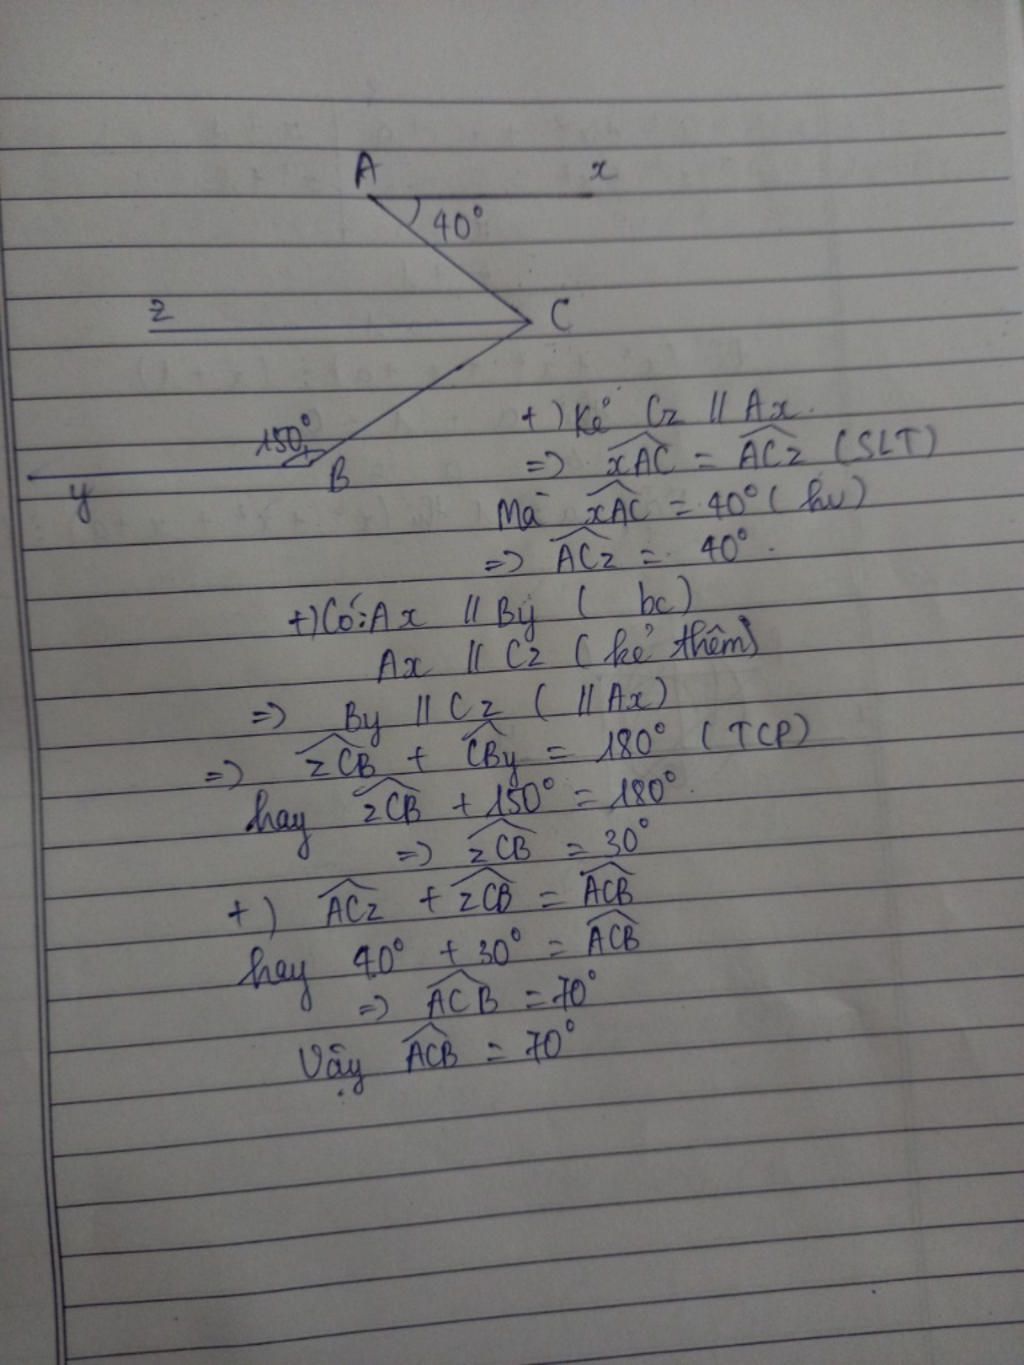 A x
40°
z C
150°
y B
+) Kẻ Cz // Ax.
=> xAC = ACz (SLT)
Mà xAC = 40° (hv)
=> ACz = 40°.
+) Có: Ax // By ( bc)
Ax // Cz ( kẻ thêm)
=> By // Cz ( // Ax)
=> zCB + CBy = 180° (TCP)
hay zCB + 150° = 180°.
=> zCB = 30°
+) ACz + zCB = ACB
hay 40° + 30° = ACB
=> ACB = 70°
Vậy ACB = 70°